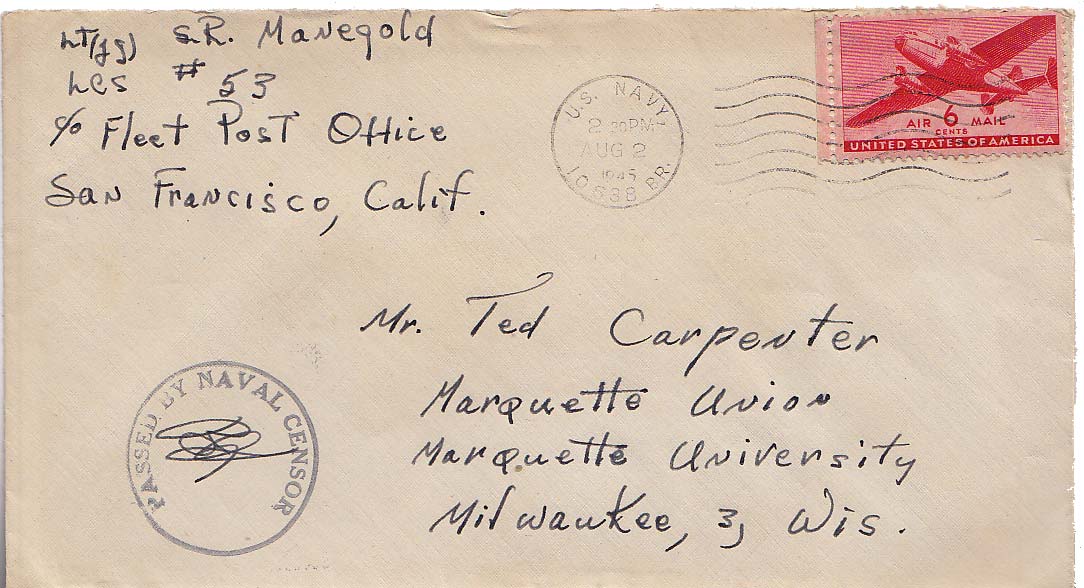 Lt(jg) S.R. Manegold
LCS # 53
c/o Fleet Post Office
San Francisco, Calif.
U.S. NAVY
2 30PM
AUG 2
1945
10638 BR.
AIR 6 MAIL
CENTS
UNITED STATES OF AMERICA
Mr. Ted Carpenter
Marquette Union
Marquette University
Milwaukee, 3, Wis.
PASSED BY NAVAL CENSOR